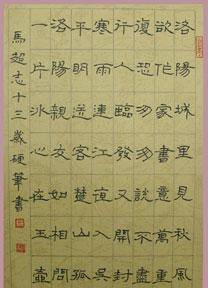 洛陽城里見秋風
欲作家書意萬重
復恐匆匆說不盡
行人臨發又開封
寒雨連江夜入吳
平明送客楚山孤
洛陽親友如相問
一片冰心在玉壺
馬超志十三歲硬筆書